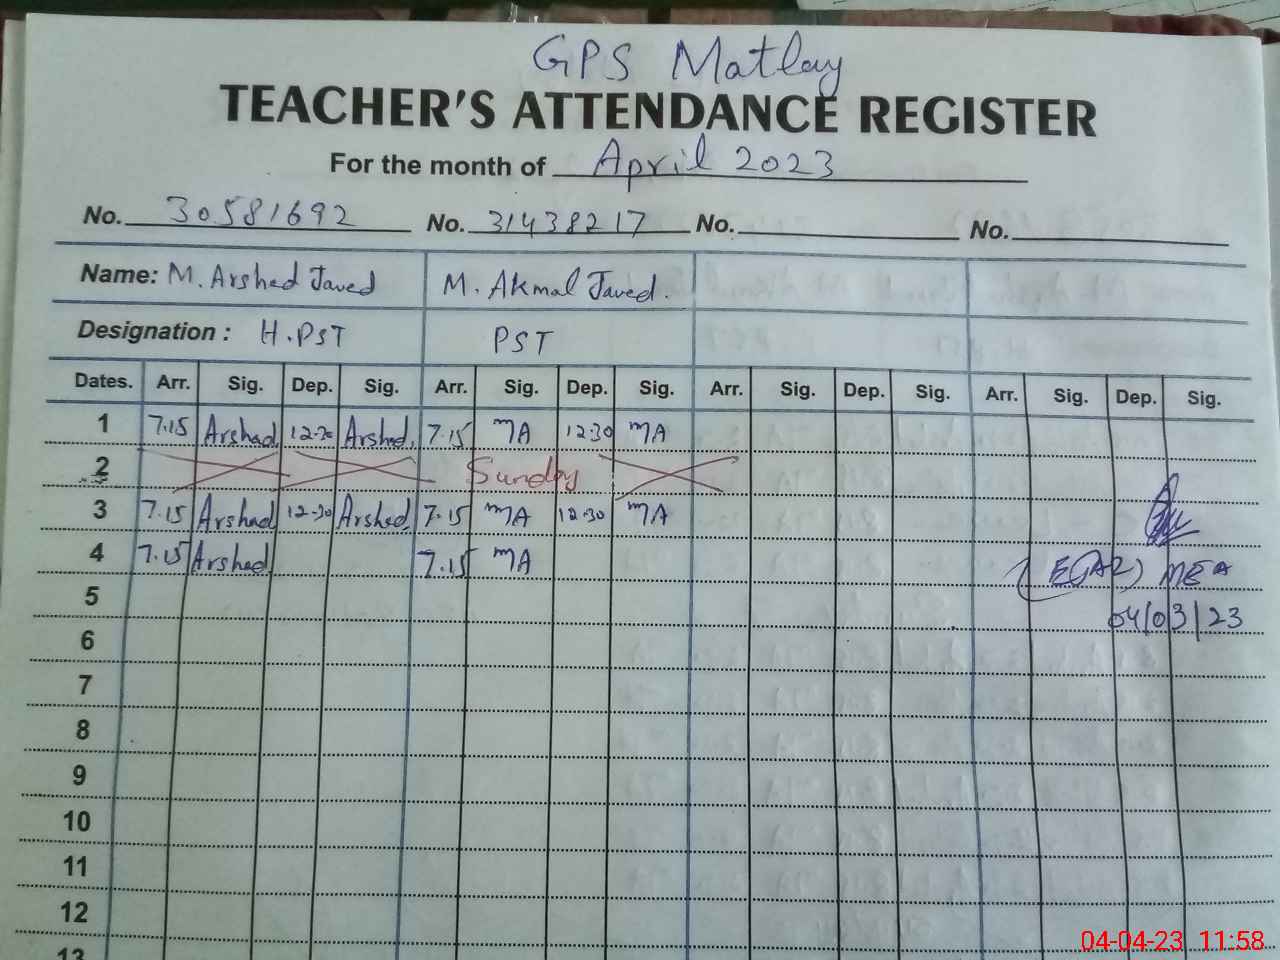 GPS Matlay
TEACHER'S ATTENDANCE REGISTER
For the month of April 2023
No. 30581692 No. 31438217 No. No.
Name: M. Arshad Javed M. Akmal Javed.
Designation : H.PST PST
Dates. Arr. Sig. Dep. Sig. Arr. Sig. Dep. Sig. Arr. Sig. Dep. Sig. Arr. Sig. Dep. Sig.
1 7.15 Arshad 12.30 Arshad. 7.15 MA 12.30 MA
2 Sunday
3 7.15 Arshad 12.30 Arshad 7.15 MA 12.30 MA
4 7.15 Arshad 7.15 MA
MEA
5
04/03/23
6
7
8
9
10
11
12
13
04-04-23 11:58